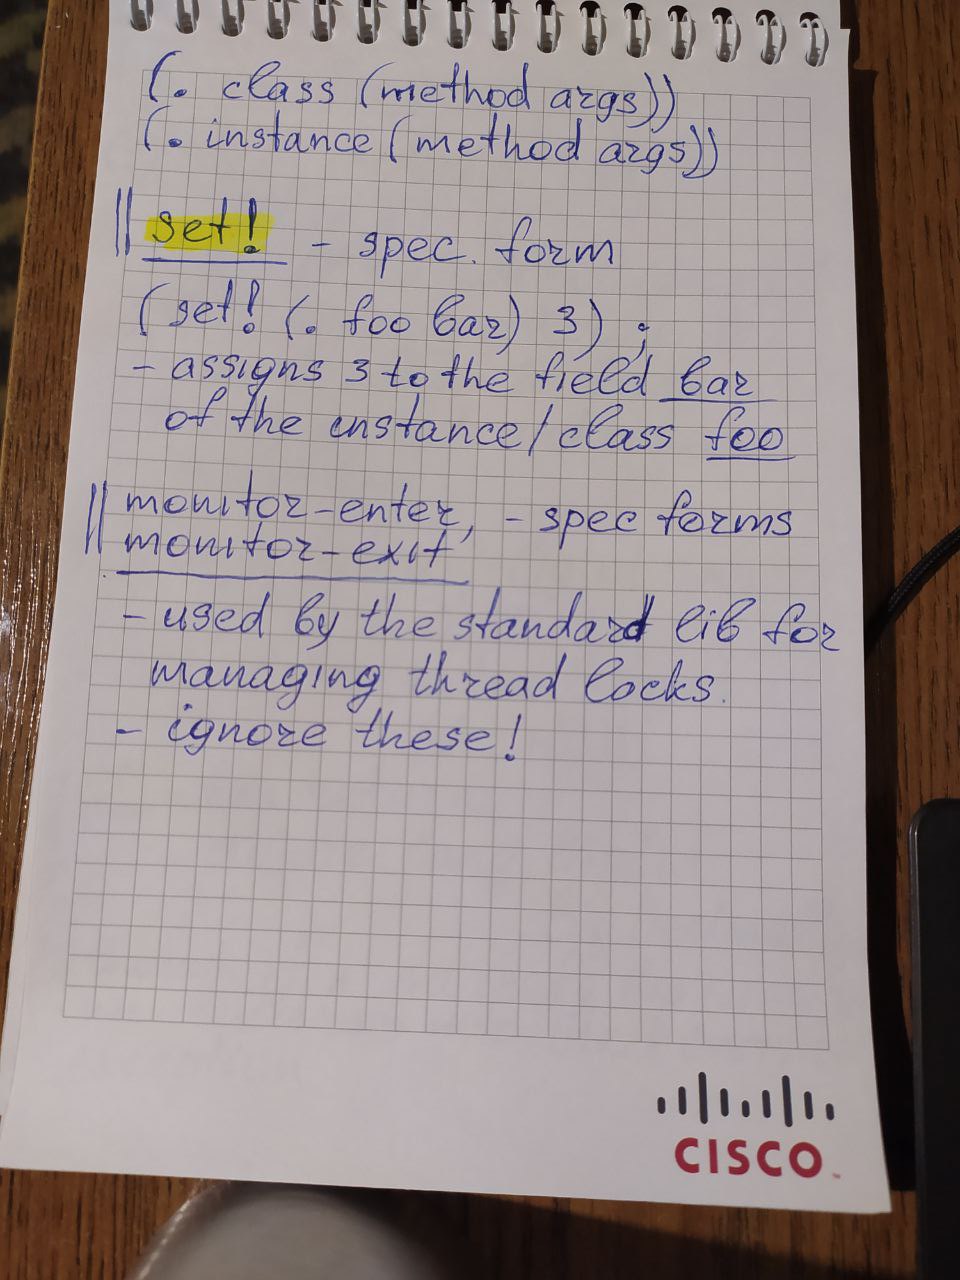 (. class (method args))
(. instance (method args))
set! - spec. form
(set! (. foo bar) 3) ;
- assigns 3 to the field bar
of the instance/class foo
monitor-enter, - spec forms
monitor-exit
- used by the standard lib for
managing thread locks.
- ignore these!
CISCO